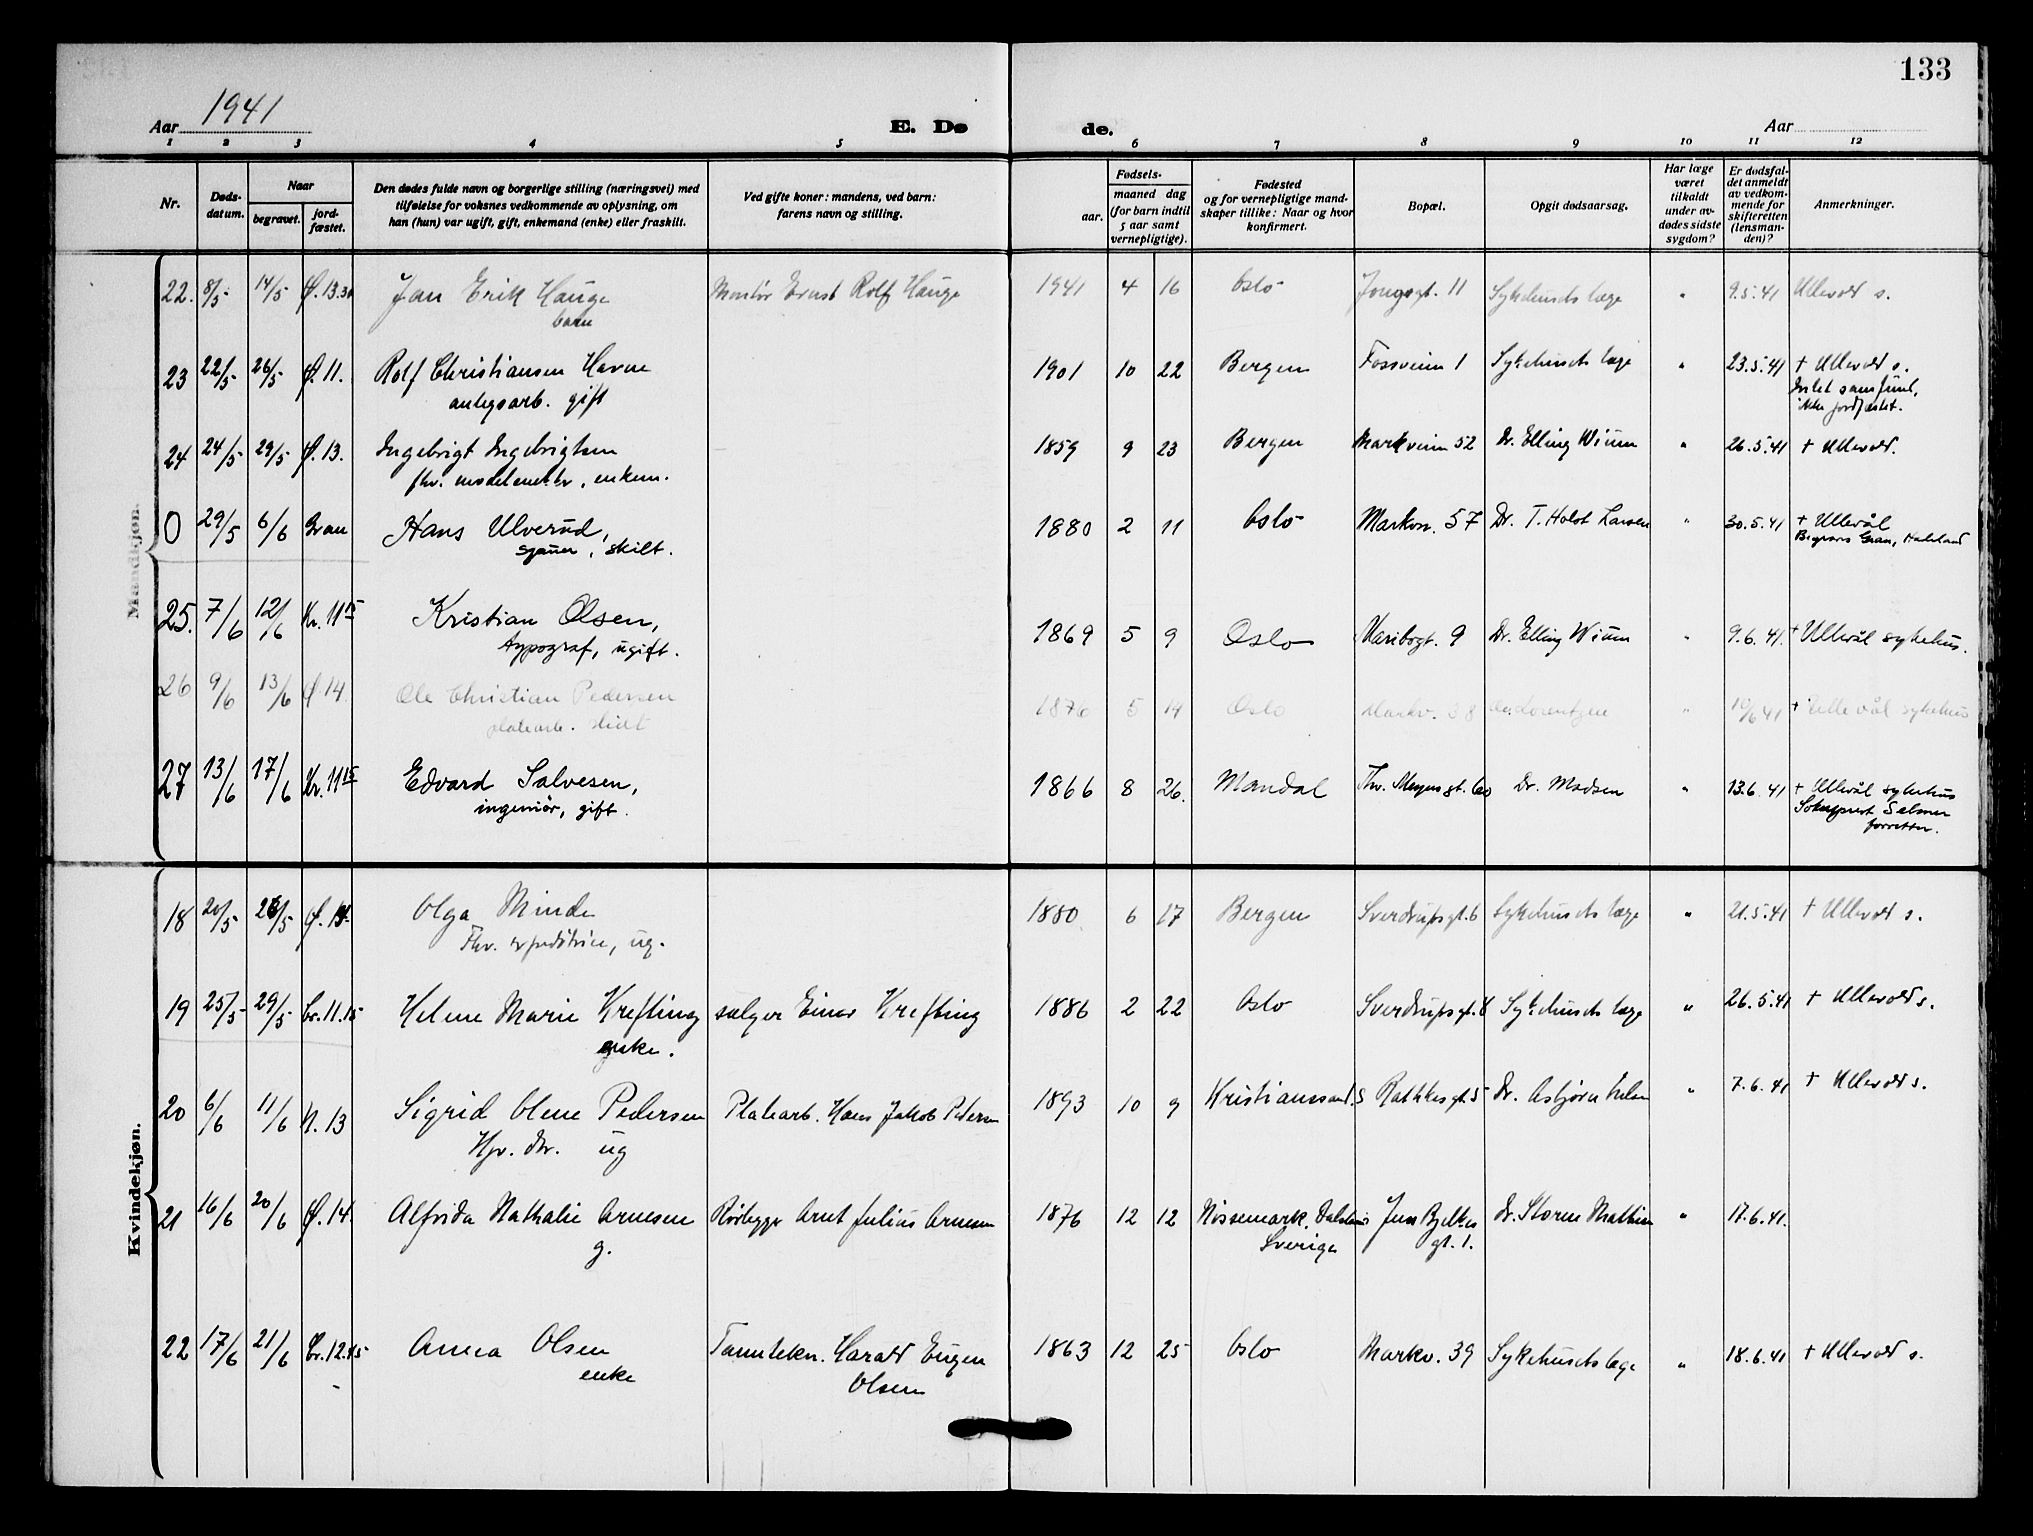 133
Aar 1941
E. Dø de.
Aar
1 2 3 4 5 6 7 8 9 10 11 12
Nr.
Døds-
datum.
Naar
begravet.
jord-
fæstet.
Den dødes fulde navn og borgerlige stilling (næringsvei) med
tilføielse for voksnes vedkommende av oplysning, om
han (hun) var ugift, gift, enkemand (enke) eller fraskilt.
Ved gifte koner: mandens, ved barn:
farens navn og stilling.
Fødsels-
aar.
maaned dag
(for barn indtil
5 aar samt
vernepligtige).
Fødested
og for vernepligtige mand-
skaper tillike: Naar og hvor
konfirmert.
Bopæl.
Opgit dødsaarsag.
Har læge
været
tilkaldt
under av-
dødes sidste
sygdom?
Er dødsfal-
det anmeldt
av vedkom-
mende for
skifteretten
(lensman-
den)?
Anmerkninger.
Mandkjøn.
22. 8/5 14/5 Ø. 13.30 Jan Erik Hauge Montør Ernst Rolf Hauge 1941 4 16 Oslo Jongsgt. 11 Sykehusets læge " 9.5.41 Ullevold s.
barn
23 22/5 26/5 Ø. 11. Rolf Christiansen Havne 1901 10 22 Bergen Fossveien 1 Sykehusets læge " 23.5.41 + Ullevold s.
anlegsarb. gift
Intet samfund,
ikke jordfæstet.
24 24/5 29/5 Ø. 13. Ingebrigt Ingebrigtsen 1859 9 23 Bergen Markveien 52 Dr. Elling Wium " 26.5.41 + Ullevold.
fhv. , enkem.
0 29/5 6/6 Gran Hans Ulverud, 1880 2 11 Oslo Markvn. 57 Dr. T. Holst Larsen " 30.5.41 + Ullevål
sjauer, skilt.
Begraves Gran, Hadeland
25. 7/6 12/6 Kr. 11 15 Kristian Olsen, 1869 5 9 Oslo Maribogt. 9 Dr. Elling Wium " 9.6.41. + Ullevål sykehus.
typograf, ugift.
26 9/6 13/6 Ø 14 Ole Christian Pedersen 1876 5 14 Oslo Markv. 38 Dr. Lorentzen " 10/6 41 + Ullevål sykehus
platearb. skilt
27 13/6 17/6 Kr. 11 15 Edvard Salvesen, 1866 8 26. Mandal Thv. Meyers gt. 60 Dr. Madsen " 13.6.41 + Ullevål sykehus
ingeniør, gift.
Sokneprest Selmer
forretter.
Kvindekjøn.
18 20/5 26/5 Ø. Olga Minde 1880 6 17 Bergen Sverdrupsgt. 6 Sykehusets læge " 21.5.41 + Ullevold s.
Fhv. expeditrice, ug.
19 25/5 29/5 Cr. 11.15 Helene Marie Krefting sælger Einar Krefting 1886 2 22 Oslo Sverdrupsgt. 8 Sykehusets læge " 26.5.41 + Ullevold s.
enke.
20 6/6 11/6 N. 13 Sigrid Olene Pedersen Platearb. Hans Jakob Pedersen 1893 10 9 Kristianssand S Rathkesgt. 5 Dr. Asbjørn " 7.6.41 + Ullevold s.
Hjv. dtr. ug
21 16/6 20/6 Ø. 14. Alfrida Nathalie Arnesen Rørlegger Arnt Julius Arnesen 1876 12 12 Nössemark, Dalsland Jens Bjelkes Dr. Støren Mathisen " 17.6.41.
g.
Sverige
gt. 1.
22 17/6 21/6 Cr. 12.45 Anna Olsen Tanntekn. Harald Eugen 1863 12 25 Oslo Markv. 39 Sykehusets læge " 18.6.41 + Ullevold s.
enke
Olsen